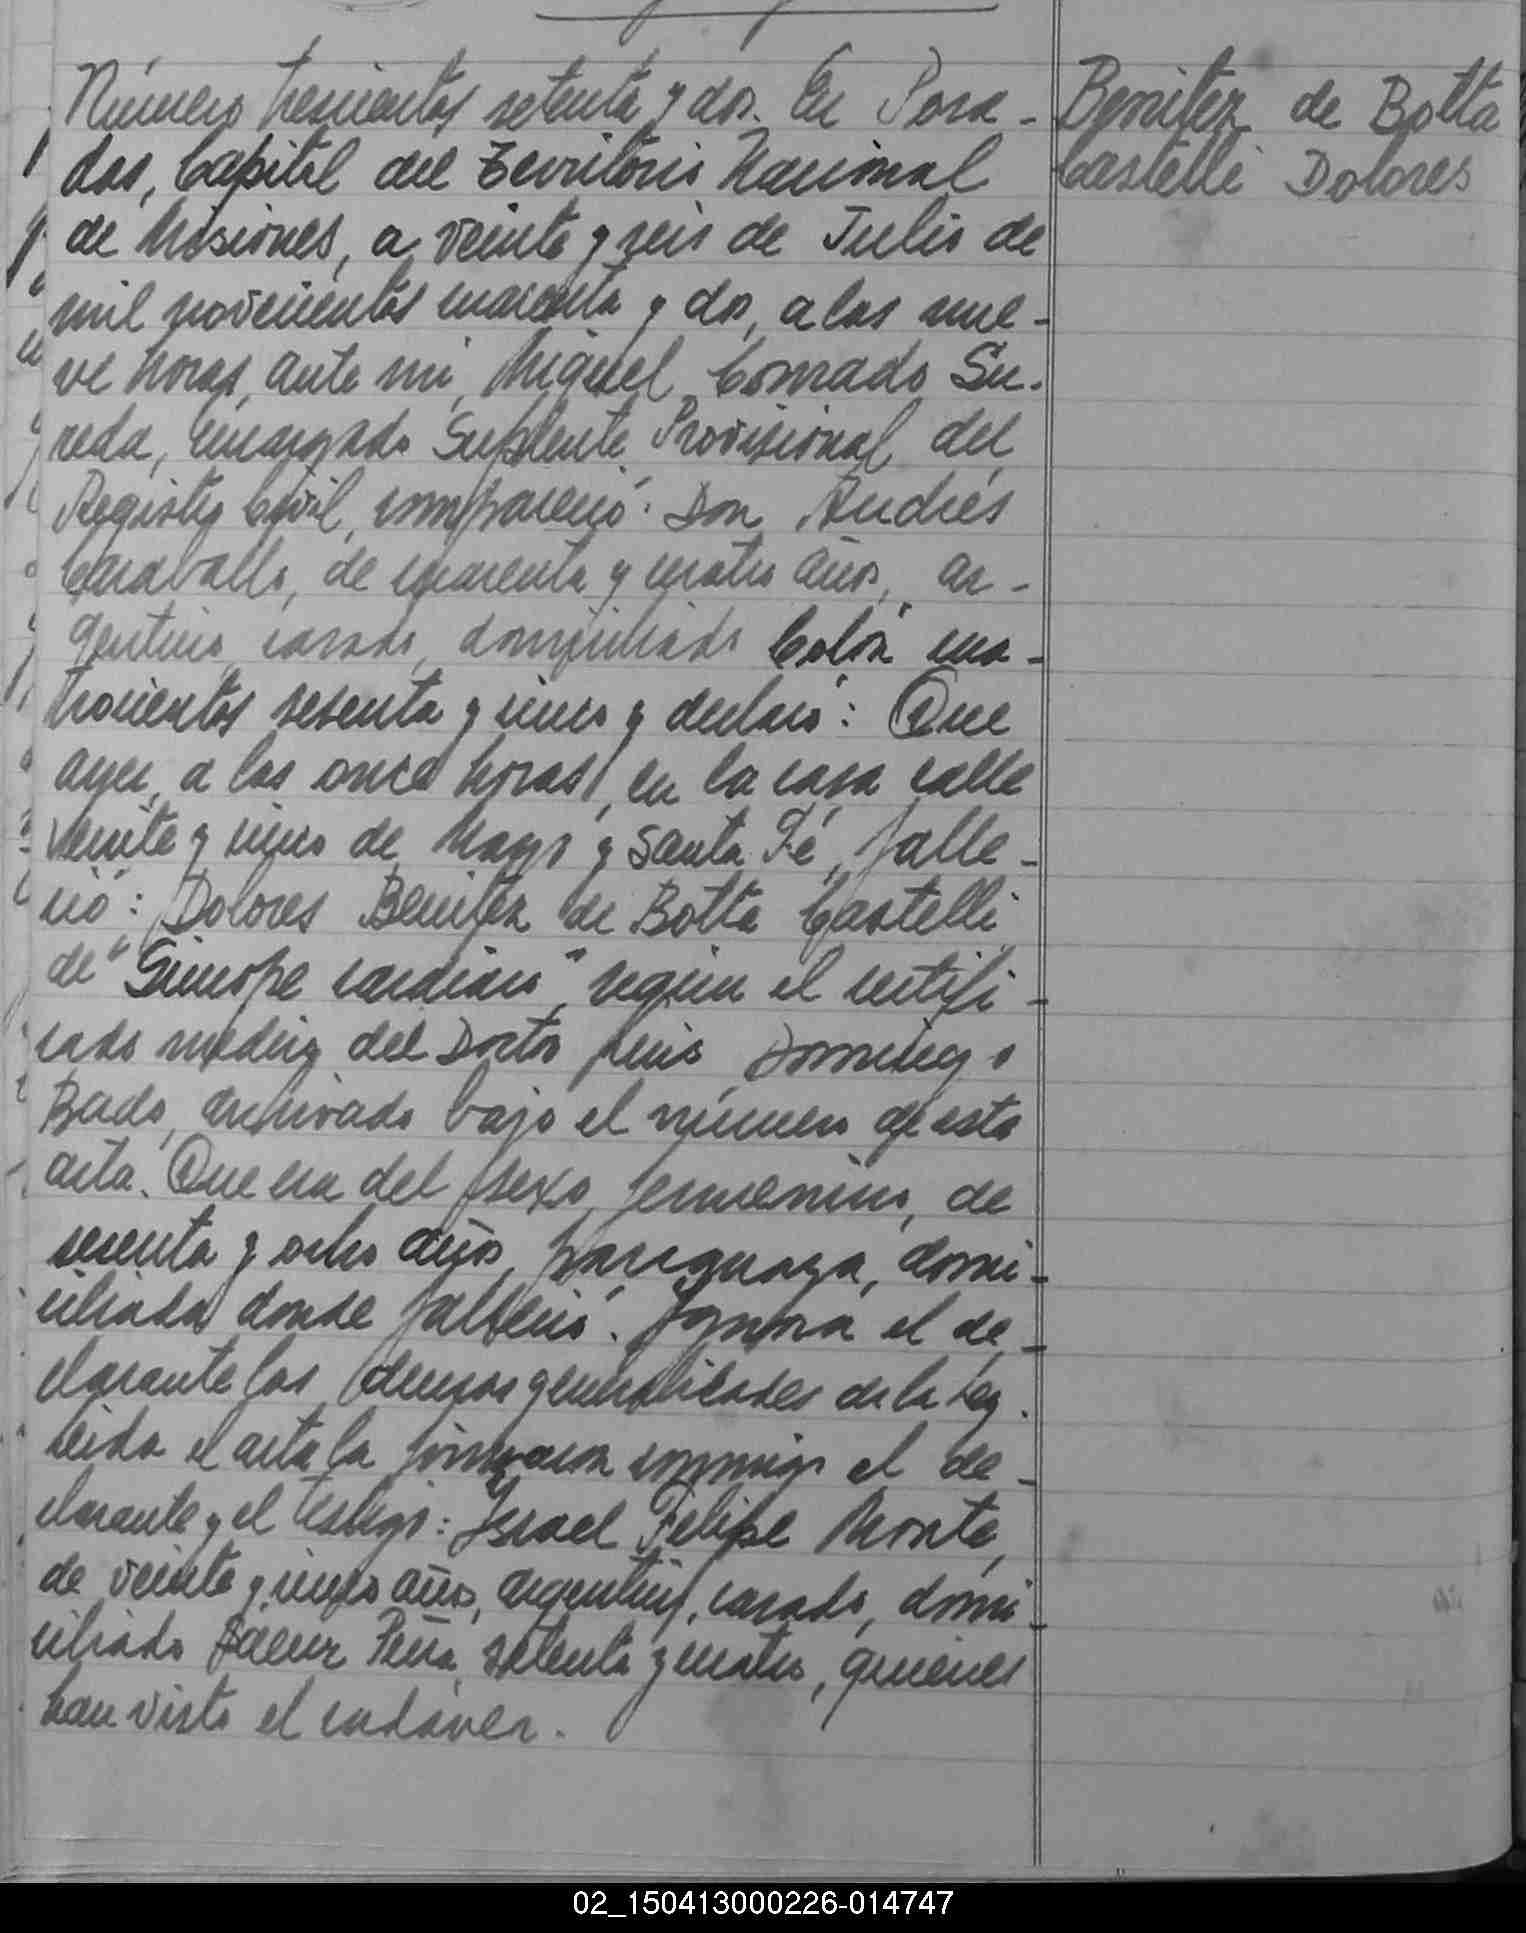 Número trescientos setenta y dos. En Posa-
das, Capital del Territorio Nacional
de Misiones, a veinte y seis de Julio de
mil novecientos cuarenta y dos, a las nue-
ve horas, ante mi, Miguel Conrado Su-
reda, encargado Suplente Provisional del
Registro Civil, compareció: Don Andrés
Caraballo, de cuarenta y cuatro años, ar-
gentino, casado, domiciliado Colón cua-
trocientos sesenta y cinco y declaró: Que
ayer, a las once horas, en la casa calle
veinte y cinco de Mayo y Santa Fé, falle-
ció: Dolores Benitez de Botta Castelli
de "Sincope cardiaco", según el certifi-
cado medico del Doctor Luis Domingo
Bado, archivado bajo el número de esta
acta. Que era del sexo femenino, de
sesenta y ocho años, paraguaya, domi-
ciliada donde falleció. Ignora el de-
clarante las demas generalidades de la Ley.
Leida el acta la firmaron conmigo el de-
clarante y el testigo: Israel Felipe
de veinte y cinco años, argentino, casado, domi-
ciliado Saenz Peña setenta y cuatro, quienes
han visto el cadáver.
Benitez de Botta
Castelli Dolores
02_150413000226-014747